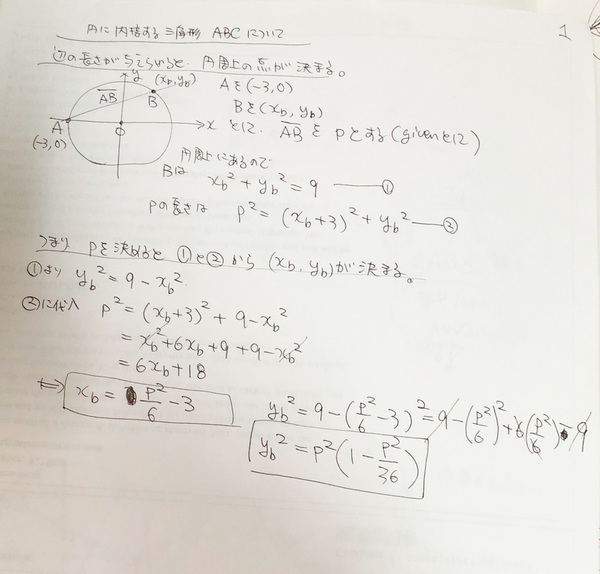 円に内接する三角形 ABCについて
1
辺の長さが与えられると、円周上の点が決まる。
y (x_b, y_b)
AB
B
A
(-3,0)
O
x
Aを(-3,0)
Bを(x_b, y_b)
とし、ABをPとする(givenとして)
円周上にあるので
Bは x_b² + y_b² = 9 ―①
Pの長さは P² = (x_b+3)² + y_b² ―②
つまり Pを決めると ①と②から (x_b, y_b)が決まる。
①より y_b² = 9 - x_b²
②に代入 P² = (x_b+3)² + 9 - x_b²
= x_b² + 6x_b + 9 + 9 - x_b²
= 6x_b + 18
⇔ x_b = P²/6 - 3
y_b² = 9 - (P²/6 - 3)² = 9 - (P²/6)² + 6(P²/6) - 9
y_b² = P²(1 - P²/36)